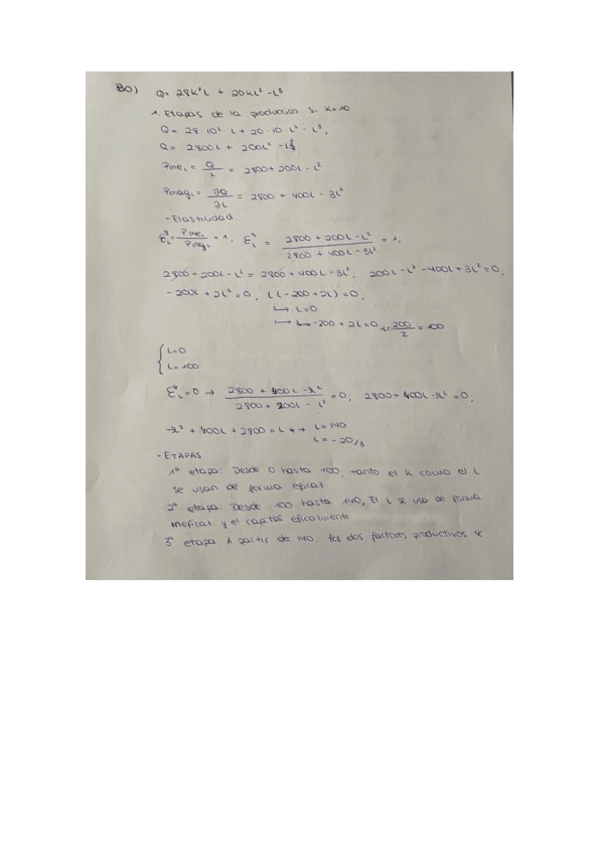 BO) Q= 28K²L + 20KL² - L³
1. Etapas de la producción si K=10
Q= 28·10²·L + 20·10·L² - L³;
Q= 2800L + 200L² - L³
Pme_L = Q/L = 2800 + 200L - L²
Pmag_L = ∂Q/∂L = 2800 + 400L - 3L²
- Elasticidad
= 1; = (2800 + 200L - L²)/(2800 + 400L - 3L²) = 1;
2800 + 200L - L² = 2800 + 400L - 3L²; 200L - L² - 400L + 3L² = 0;
-200L + 2L² = 0; L(-200 + 2L) = 0;
↳ L=0
↳ -200 + 2L = 0 L= 200/2 = 100
{ L=0
L=100
= 0 → = 0; 2800 + 400L - 3L² = 0;
-3L² + 400L + 2800 = L → L = 140
L = -20/3
- ETAPAS
1ª etapa. Desde 0 hasta 100, tanto el K como el L
se usan de forma eficaz.
2ª etapa. Desde 100 hasta 140, El L se usa de forma
ineficaz y el capital eficazmente
3ª etapa A partir de 140, los dos factores productivos se